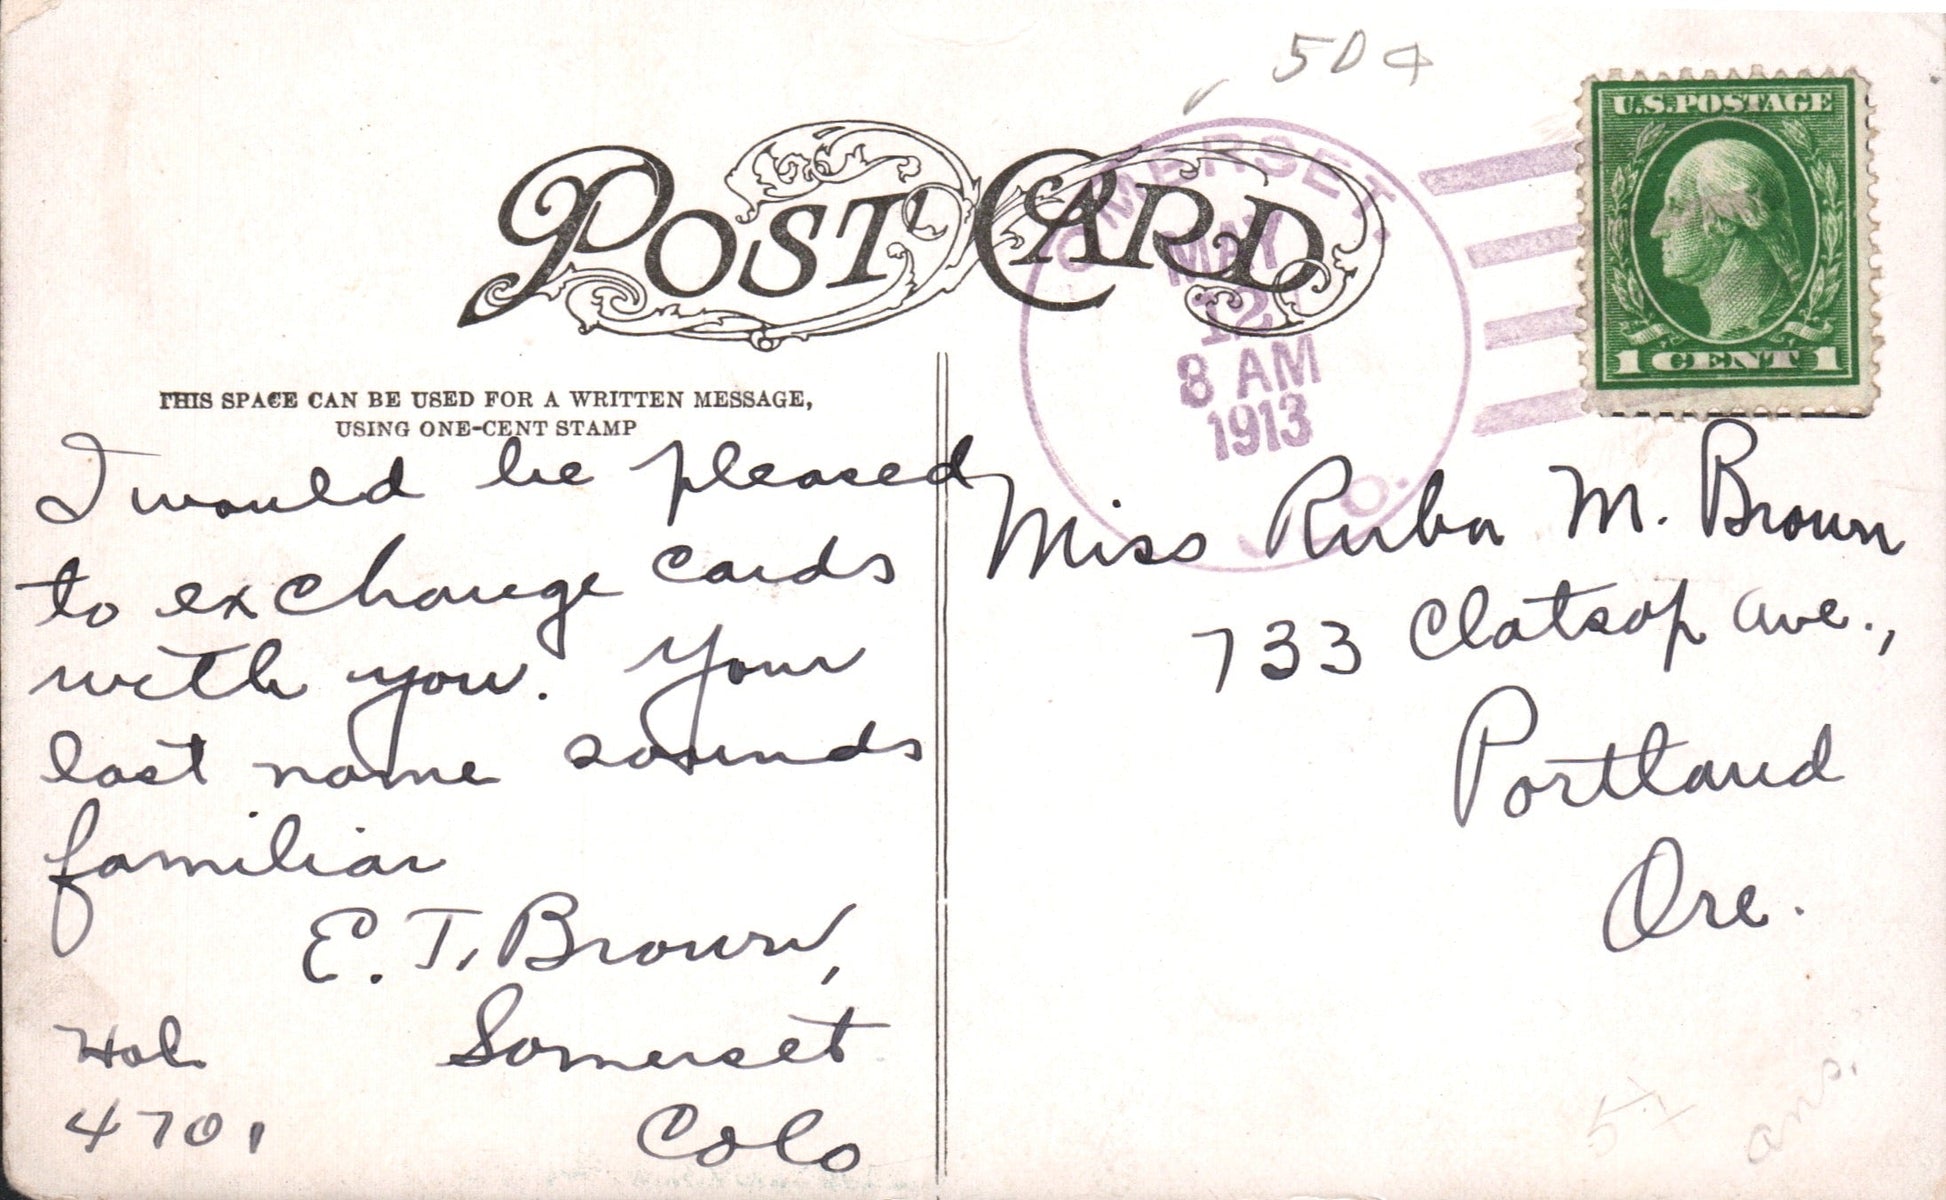 50¢
POST CARD
U.S. POSTAGE
1 CENT 1
SOMERSET,
MAY
12
8 AM
1913
THIS SPACE CAN BE USED FOR A WRITTEN MESSAGE,
USING ONE-CENT STAMP
I would be pleased
to exchange cards
with you. Your
last name sounds
familiar
E. T. Brown,
Somerset
Colo
Hol
4701
Miss Ruba M. Brown
733 Clatsop Ave.,
Portland
Ore.
ans.